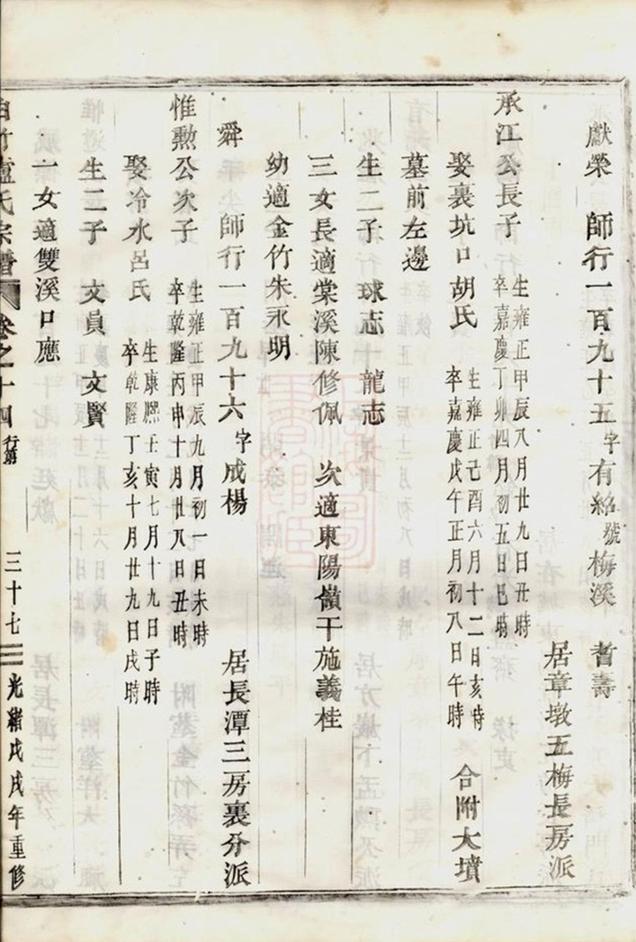 獻榮 師行一百九十五 字有紹 號梅溪 耆壽
居章墩五梅長房派
承江公長子 生雍正甲辰八月廿九日丑時 卒嘉慶丁卯四月初五日巳時
娶裏坑口胡氏 生雍正己酉六月十二日亥時 卒嘉慶戊午正月初八日午時 合附大墳
墓前左邊
生二子 球志 龍志
三女長適棠溪陳修佩 次適東陽嶺干施義桂
幼適金竹朱永明
舜 師行一百九十六 字成楊 居長潭三房裏分派
惟勲公次子 生雍正甲辰九月初一日未時 卒乾隆丙申十月廿八日丑時
娶冷水呂氏 生康熙壬寅七月十九日子時 卒乾隆丁亥十月廿九日戌時
生二子 文員 文賢
一女適雙溪口應
竹盧氏宗譜 卷之十四 行第 三十七 光緒戊戌年重修